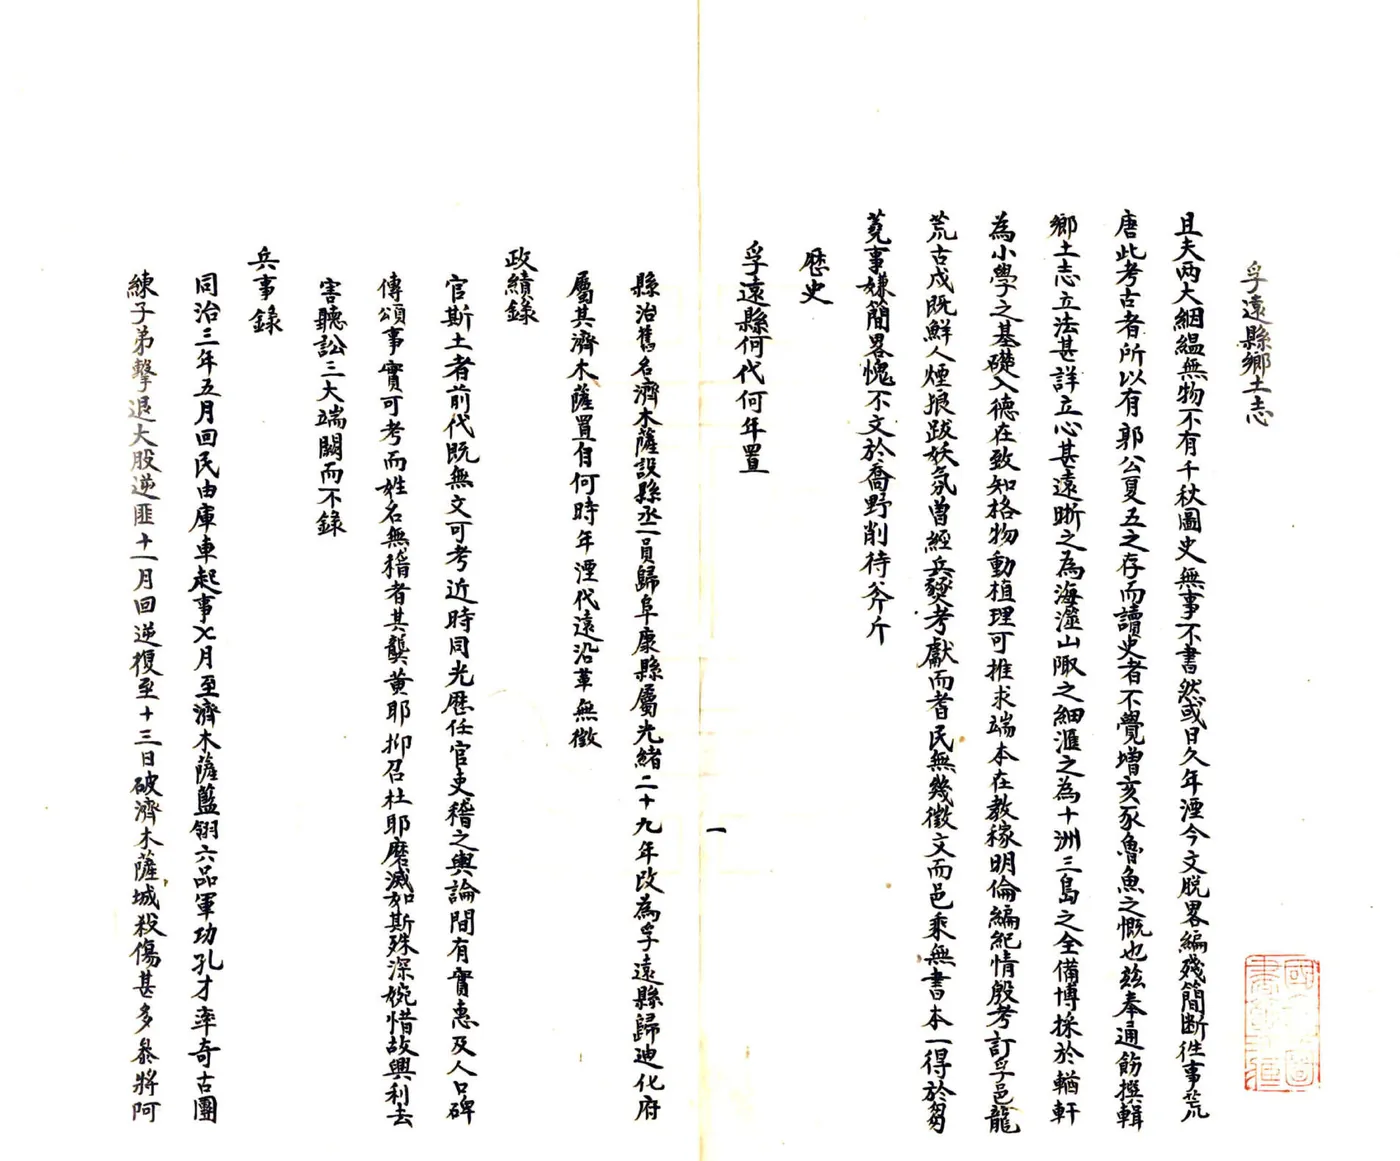 孚遠縣鄉土志
且夫兩大絪緼無物不有千秋圖史無事不書然或日久年湮今文脫畧編殘簡断往事荒
唐此考古者所以有郭公夏五之存而讀史者不覺增亥豕魯魚之慨也兹奉通飭撰輯
鄉土志立法甚詳立心甚遠晰之為海澨山陬之細滙之為十洲三島之全備博採於輶軒
為小學之基礎入德在致知格物動植理可推求端本在教稼明倫編紀情殷考訂孚邑龍
荒古戍既鮮人煙狼跋妖氛曽經兵燹考獻而耆民無幾徵文而邑乘無書本一得於芻
蕘事嫌簡畧愧不文於喬野削待斧斤
歷史
孚遠縣何代何年置
縣治舊名濟木薩設縣丞一員歸阜康縣屬光緒二十九年改為孚遠縣歸迪化府
屬其濟木薩置自何時年湮代遠沿革無徵
政績錄
官斯土者前代既無文可考近時同光歷任官吏稽之輿論間有實惠及人口碑
傳頌事實可考而姓名無稽者其龔黄耶抑召杜耶磨滅如斯殊深婉惜故興利去
害聽訟三大端闕而不錄
兵事錄
同治三年五月回民由庫車起事七月至濟木薩藍翎六品軍功孔才率奇古團
練子弟擊退大股逆匪十一月回逆復至十三日破濟木薩城殺傷甚多叅將阿
一